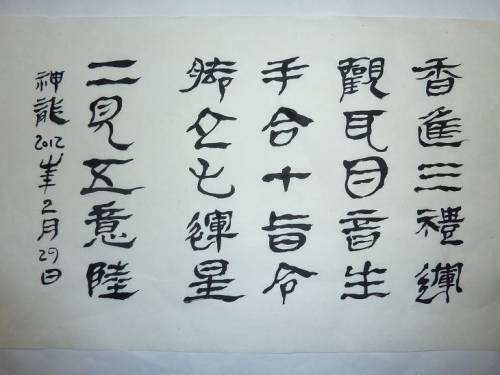 香進三禮運
觀耳目音生
手合十旨令
脚立七運星
二見五意陸
神龍2012年2月29日